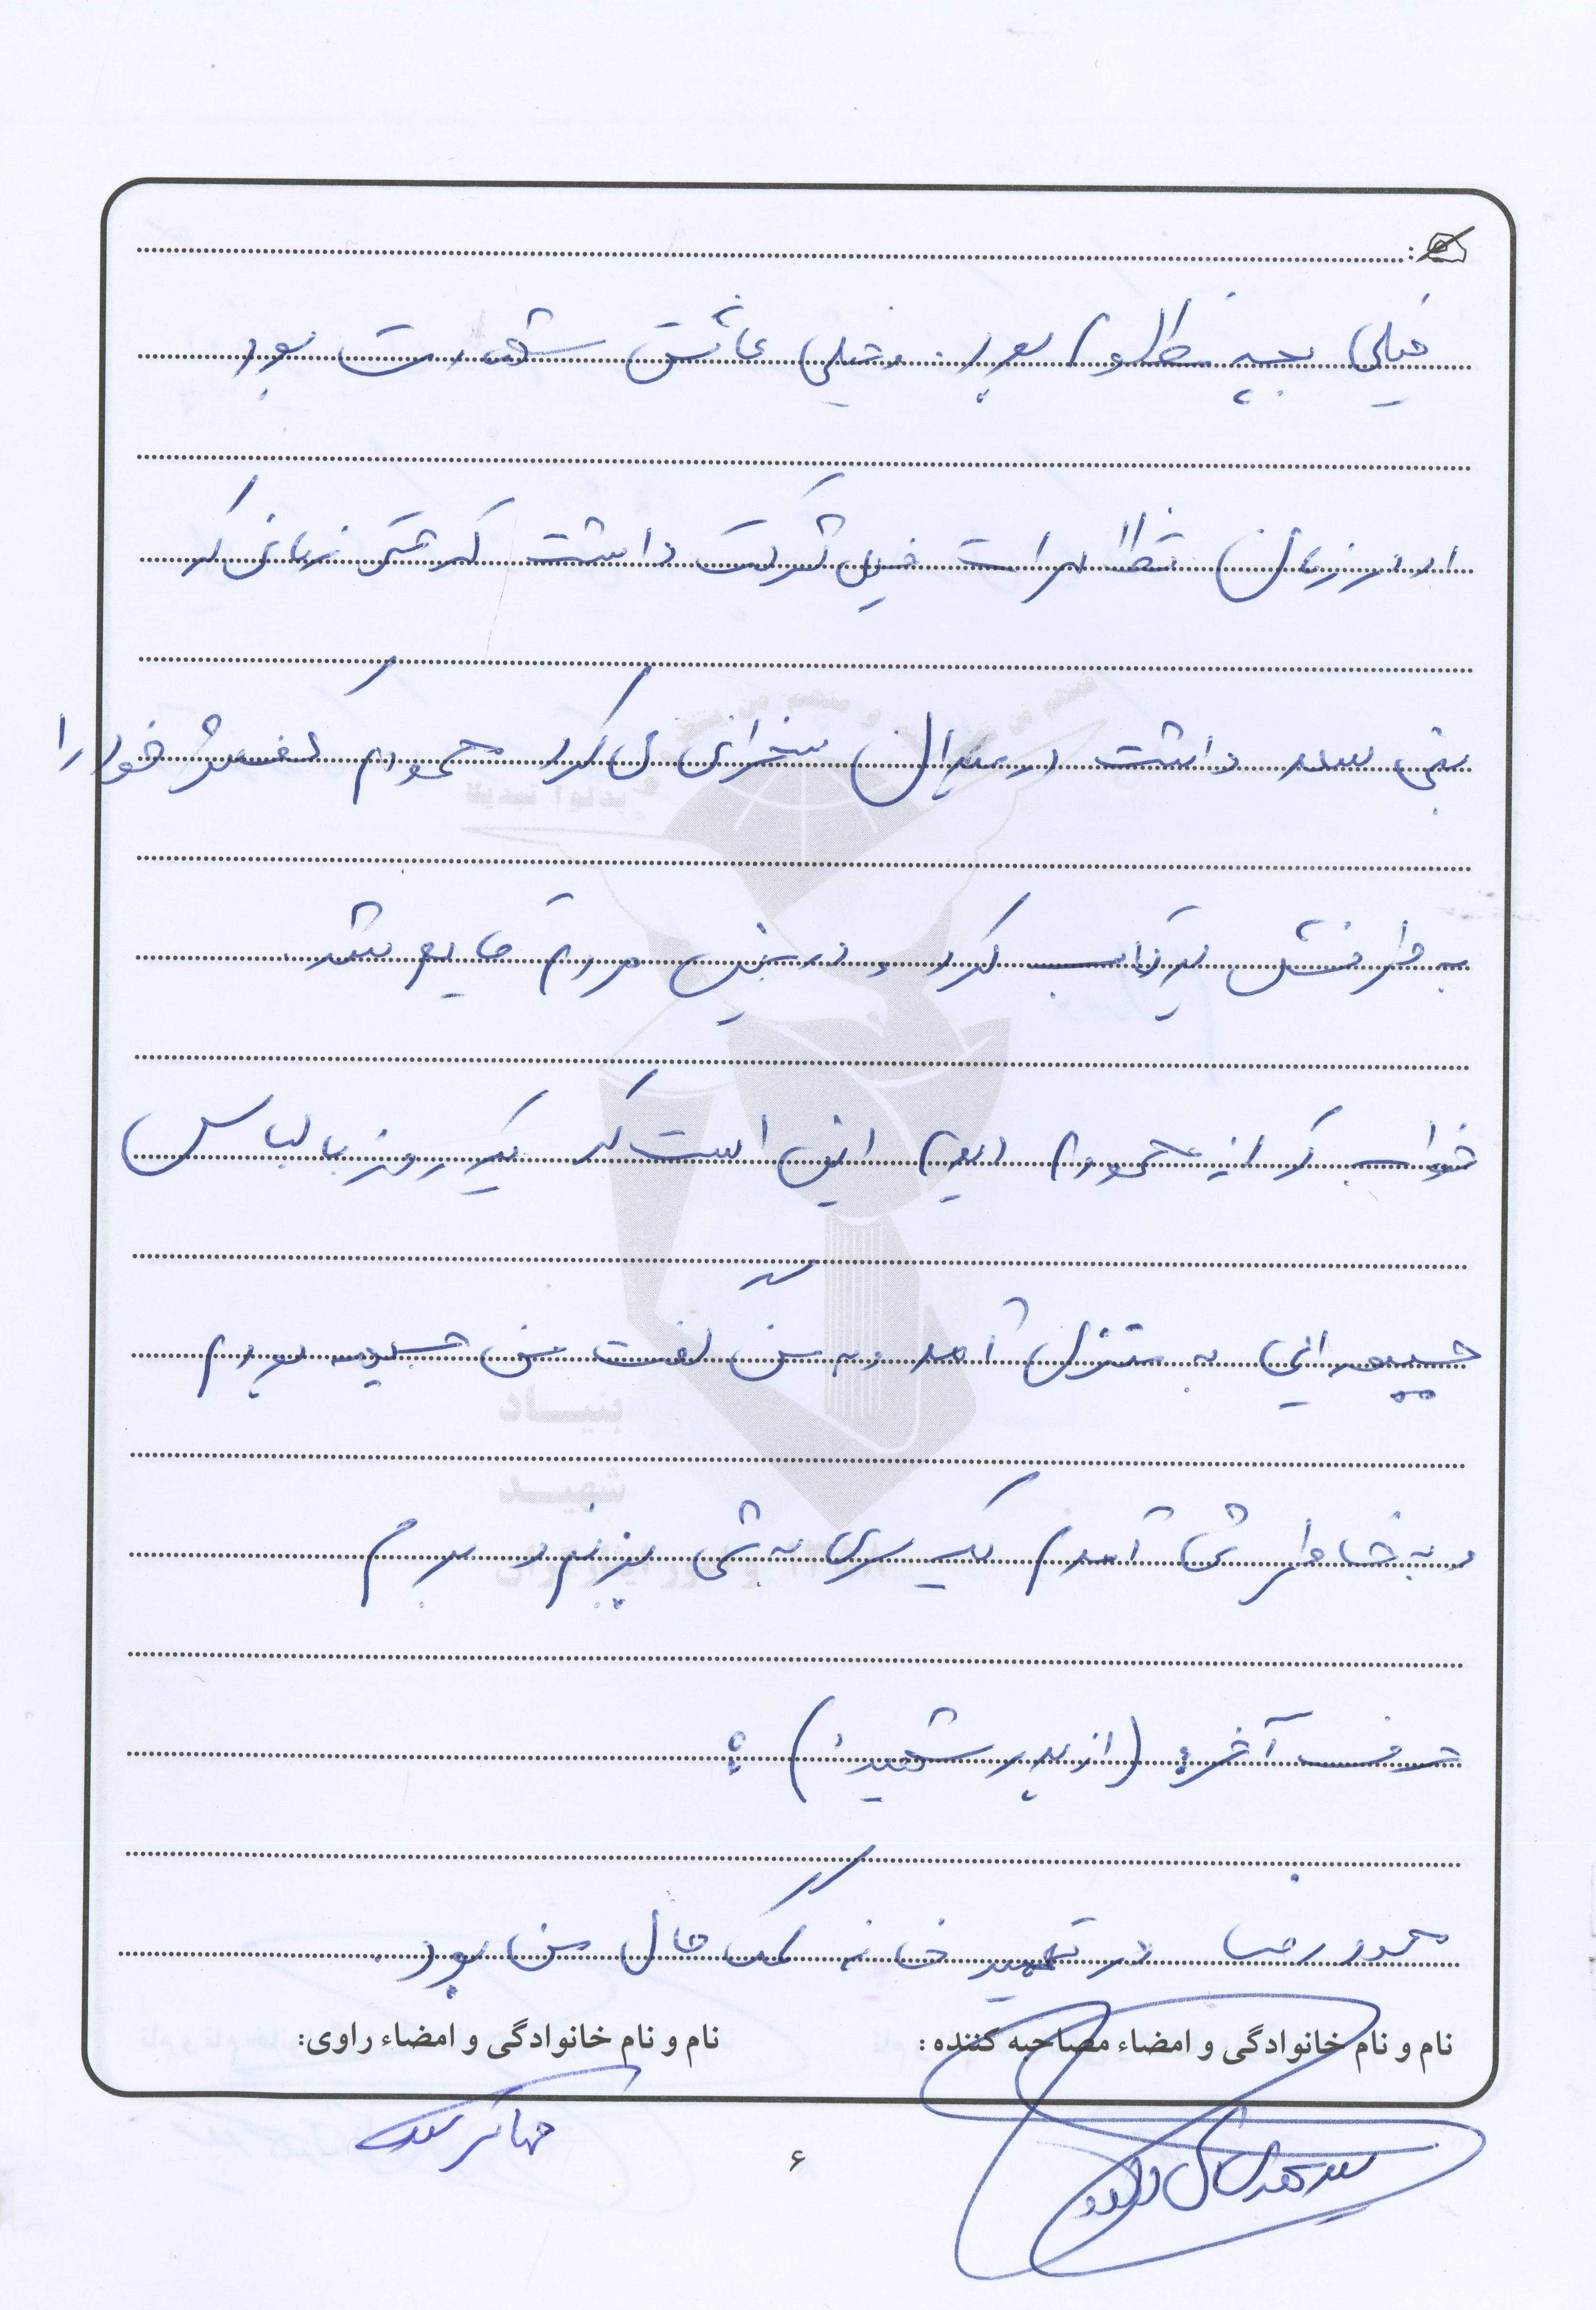 خیلی بچه مظلوم بود. و خیلی عاشق شهادت بود
او در زمان تظاهرات خیلی شرکت داشت که حتی زمانی که
بنی صدر داشت در میدان سخنرانی می کرد محمودم کفش خود را
به طرفش پرتاب کرد و در بین مردم قایم شد.
خوابی که از محمودم دیدم این است که یک روز با لباس
جبهه ایی به منزل آمد و به من گفت من جبهه بودم
و به خاطر شما آمدم یک سری به شما بزنم و بروم
حرف آخر: (از پدر شهید) :
محمود رضا در تعمیر خانه کمک حال من بود.
نام و نام خانوادگی و امضاء مصاحبه کننده: نام و نام خانوادگی و امضاء راوی:
۶
بنیاد
شهید